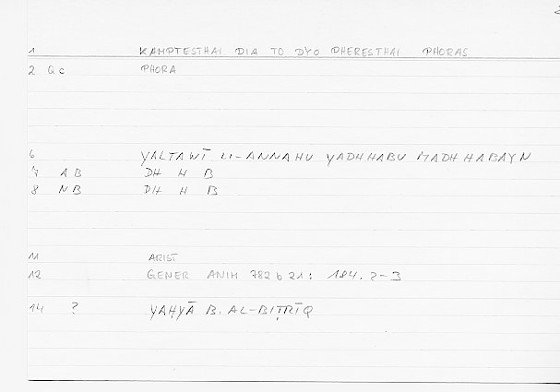 1 KAMPTESTHAI DIA TO DYO PHERESTHAI PHORAS
2 Gc PHORA
6 YALTAWĪ LI-ANNAHU YADHHABU MADHHABAYN
7 AB DH H B
8 NB DH H B
11 ARIST
12 GENER ANIM 782 b 21: 184. 2-3
14 ? YAḤYĀ B. AL-BIṬRĪQ